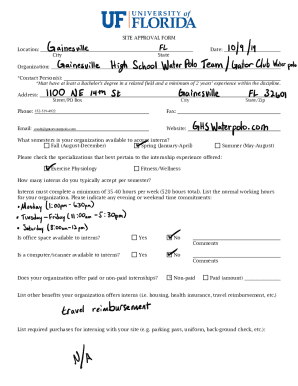 UF UNIVERSITY of FLORIDA
SITE APPROVAL FORM
Location: Gainesville FL Date: 10/9/19
City State
Organization: Gainesville High School Water Polo Team / Gator Club Water polo
*Contact Person(s):
*Must have at least a bachelor's degree in a related field and a minimum of 2 years' experience within the discipline.
Address: 1100 NE 14th St Gainesville FL 32601
Street/PO Box City State/Zip
Phone: Fax:
Email: Website: GHSWaterpolo.com
What semesters is your organization available to accept interns?
Fall (August-December) Spring (January-April) Summer (May-August)
Please check the specializations that best pertain to the internship experience offered:
Exercise Physiology Fitness/Wellness
How many interns do you typically accept per semester?
Interns must complete a minimum of 35-40 hours per week (520 hours total). List the normal working hours
for your organization. Please indicate any evening or weekend time commitments:
• Monday (1:00pm - 6:30pm)
• Tuesday - Friday (11:00am - 5:30pm)
• Saturday (8:00am - 12pm)
Is office space available to interns? Yes No
Comments
Is a computer/scanner available to interns? Yes No
Comments
Does your organization offer paid or non-paid internships? Non-paid Paid (amount)
List other benefits your organization offers interns (i.e. housing, health insurance, travel reimbursement, etc.)
travel reimbursement
List required purchases for interning with your site (e.g. parking pass, uniform, back-ground check, etc.):
N/A